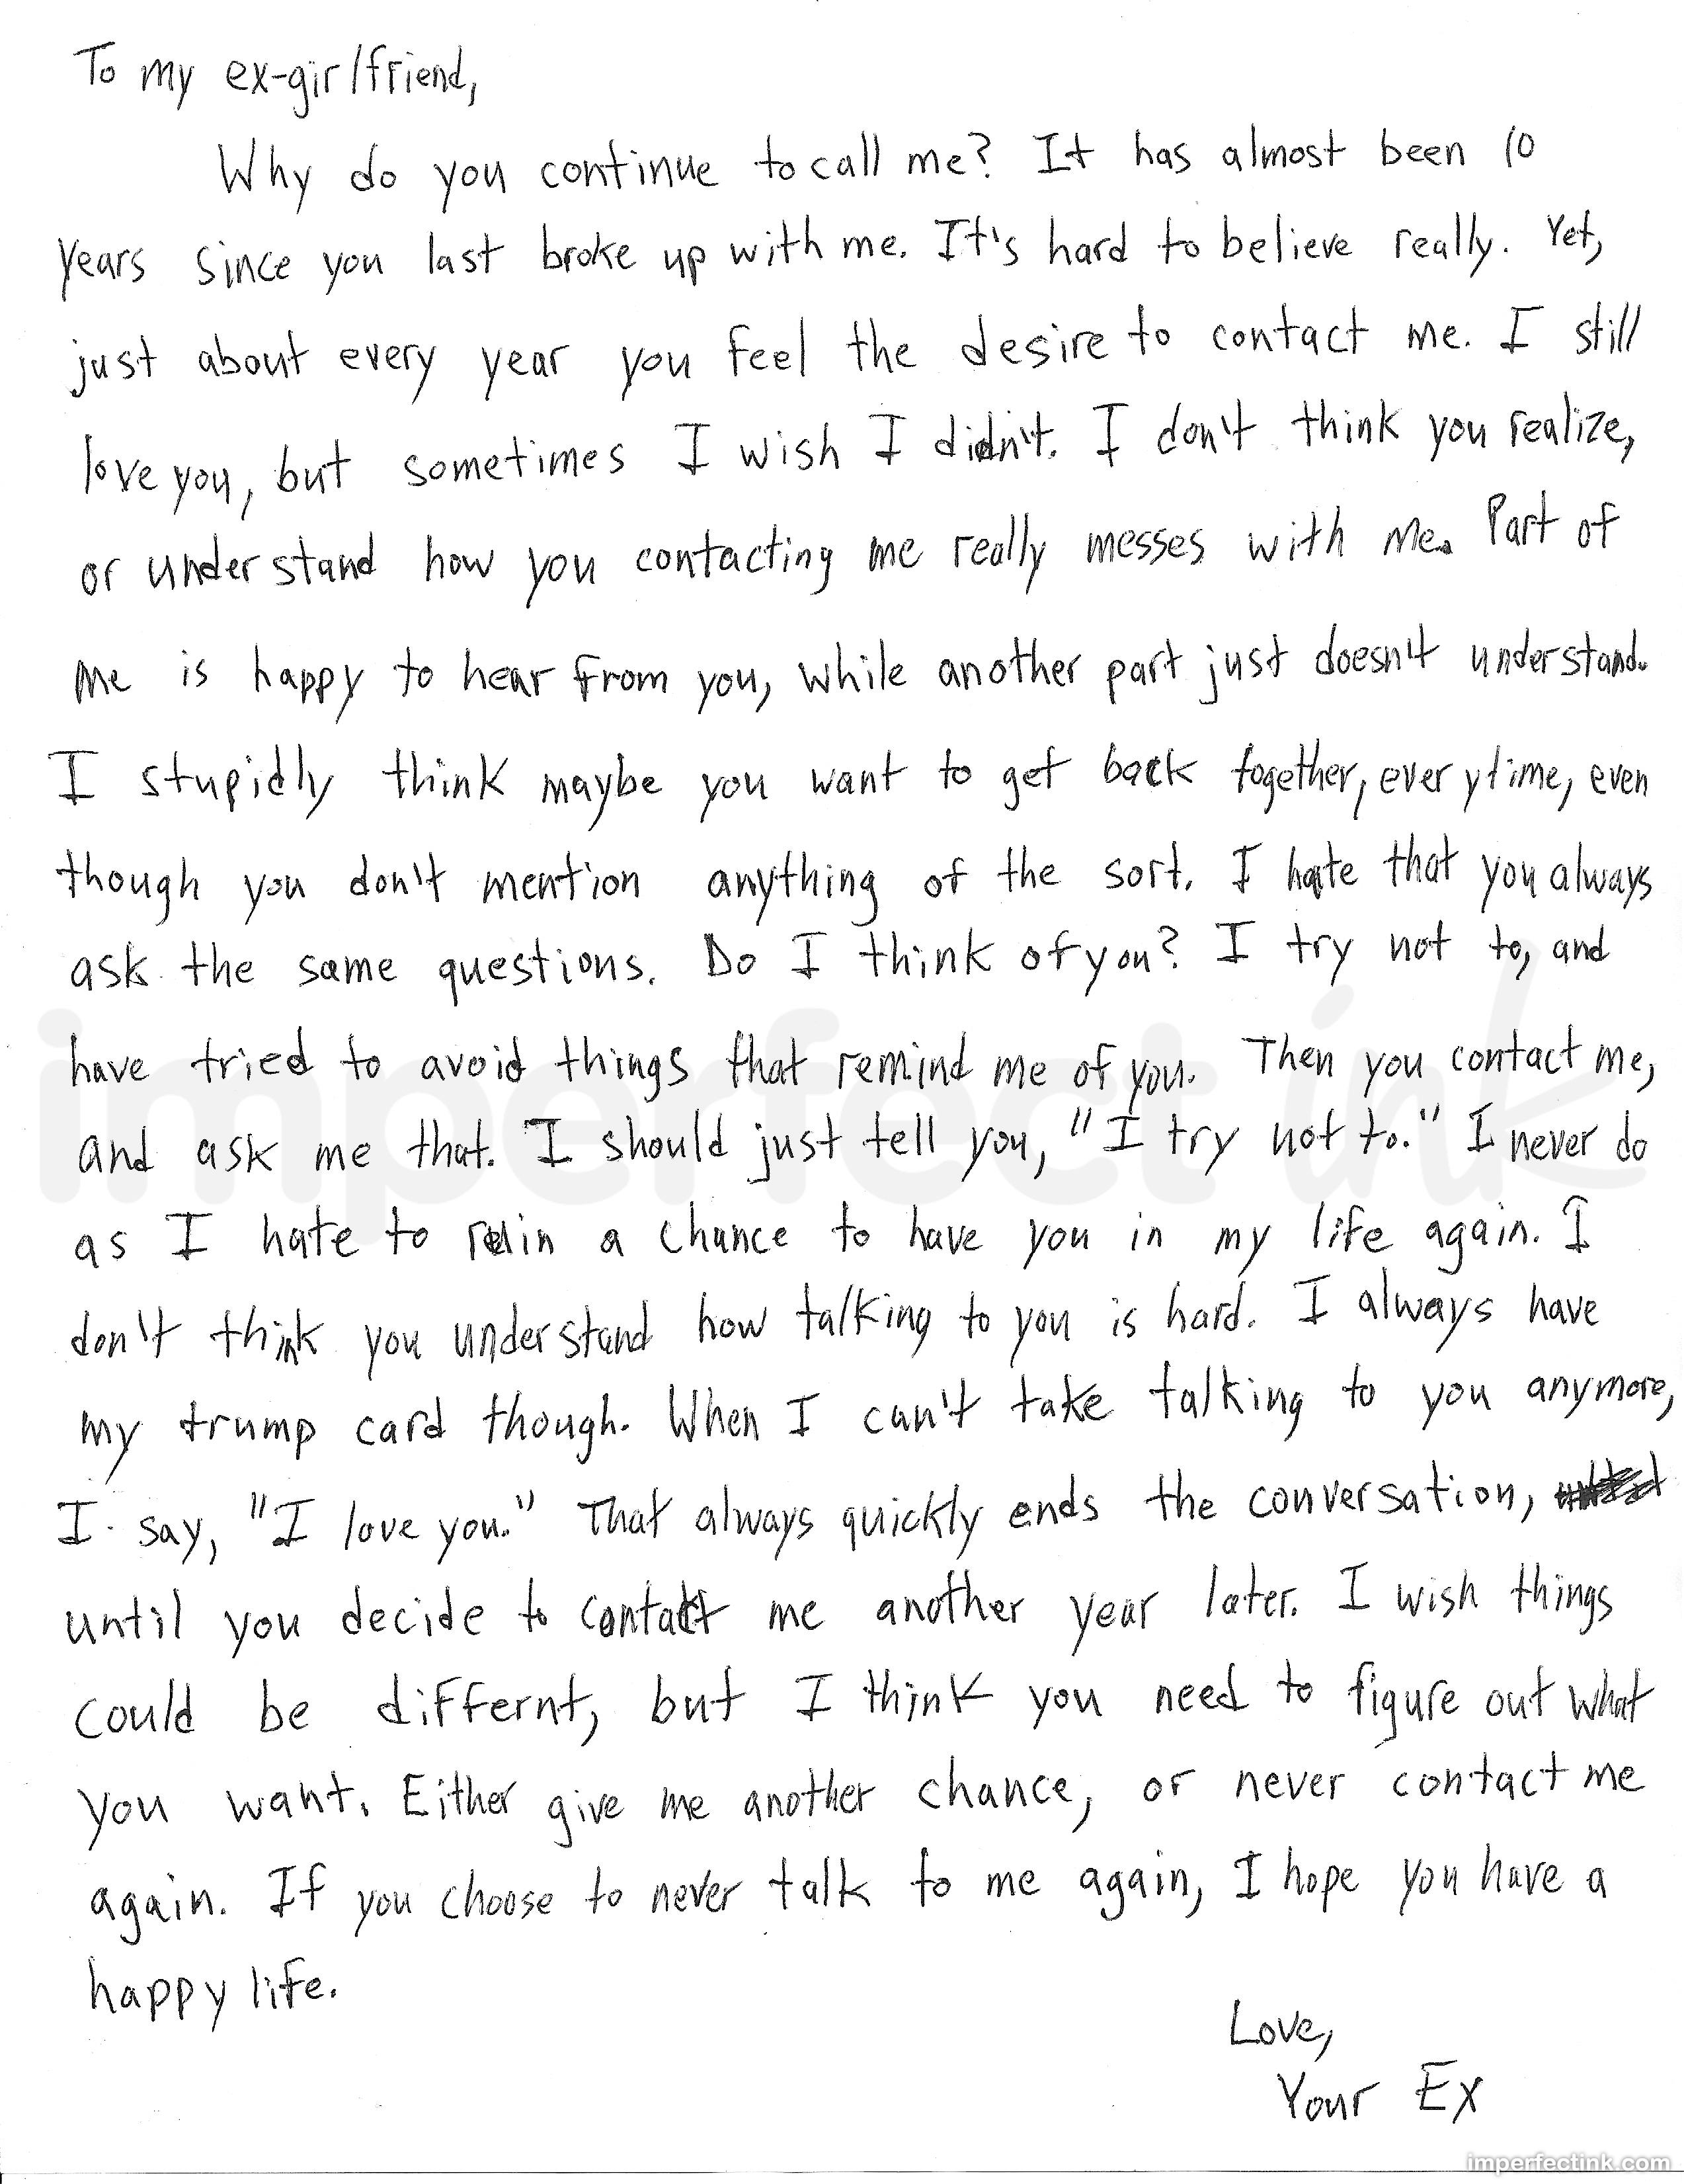 To my ex-girlfriend,
Why do you continue to call me? It has almost been 10
years since you last broke up with me. It's hard to believe really. Yet,
just about every year you feel the desire to contact me. I still
love you, but sometimes I wish I didn't. I don't think you realize,
or understand how you contacting me really messes with me. Part of
me is happy to hear from you, while another part just doesn't understand.
I stupidly think maybe you want to get back together, everytime, even
though you don't mention anything of the sort. I hate that you always
ask the same questions. Do I think of you? I try not to, and
have tried to avoid things that remind me of you. Then you contact me,
and ask me that. I should just tell you, "I try not to." I never do
as I hate to ruin a chance to have you in my life again. I
don't think you understand how talking to you is hard. I always have
my trump card though. When I can't take talking to you anymore,
I say, "I love you." That always quickly ends the conversation,
until you decide to contact me another year later. I wish things
could be differnt, but I think you need to figure out what
you want. Either give me another chance, or never contact me
again. If you choose to never talk to me again, I hope you have a
happy life.
Love,
Your Ex
imperfect ink
imperfectink.com